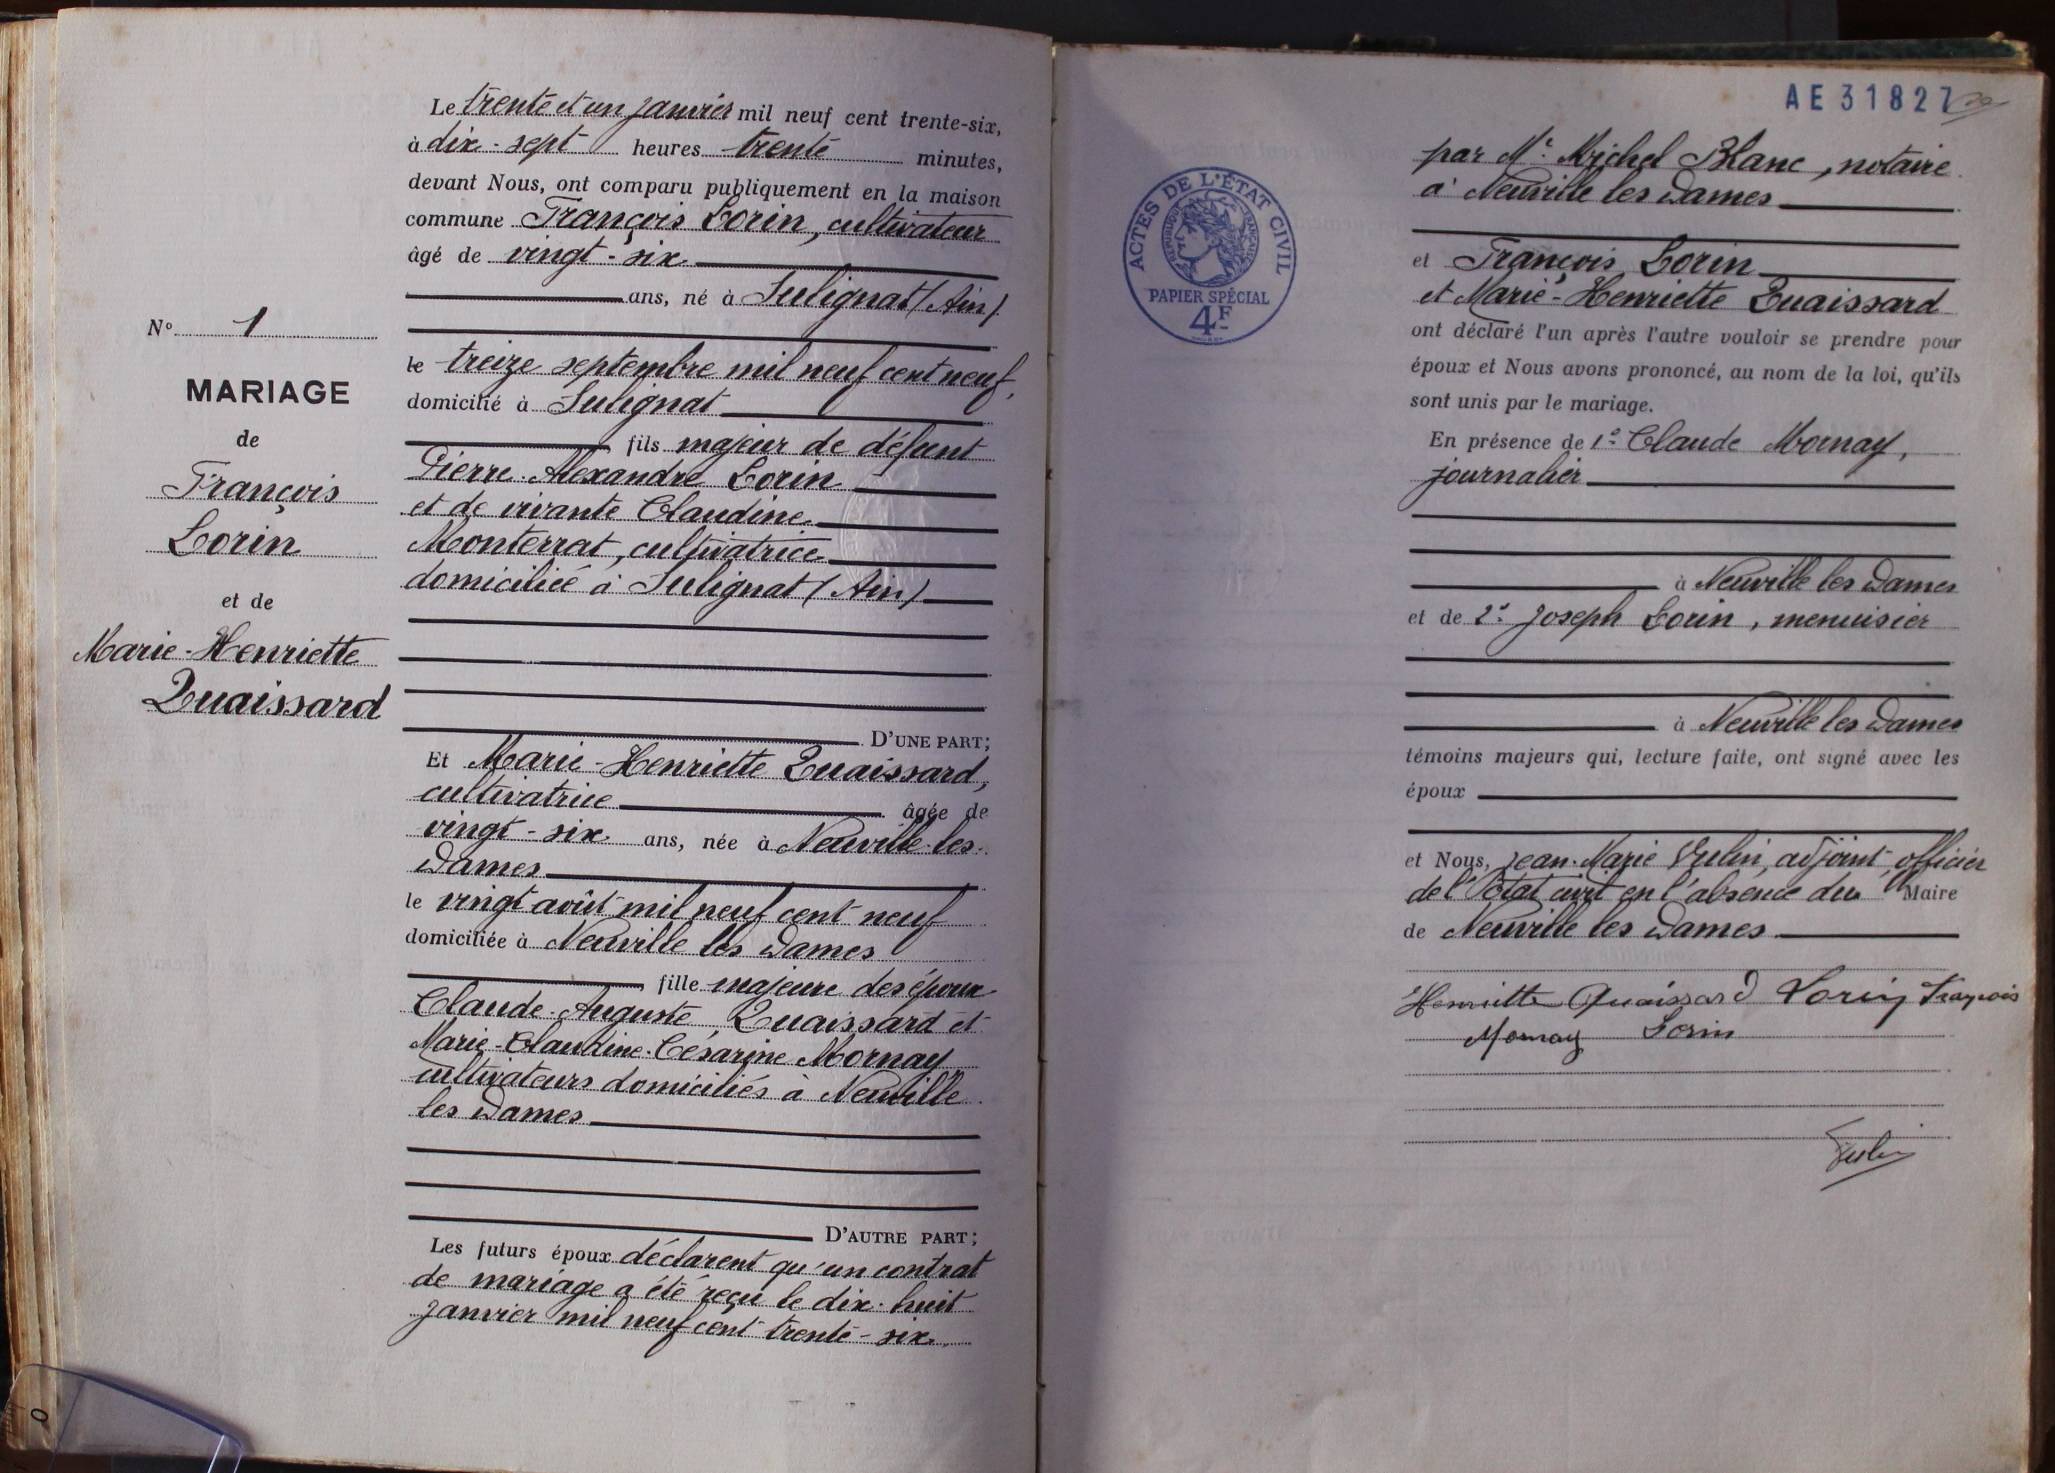 Le trente et un janvier mil neuf cent trente-six,
à dix-sept heures trente minutes,
devant Nous, ont comparu publiquement en la maison
commune François Lorin, cultivateur
âgé de vingt-six
ans, né à Sulignat (Ain)
le treize septembre mil neuf cent neuf,
domicilié à Sulignat
fils majeur de défunt
Pierre-Alexandre Lorin
et de vivante Claudine
Monterrat, cultivatrice
domiciliée à Sulignat (Ain)
D'UNE PART;
Et Marie-Henriette Quaissard,
cultivatrice âgée de
vingt-six ans, née à Neuville-les-
Dames
le vingt août mil neuf cent neuf
domiciliée à Neuville les Dames
fille majeure des époux
Claude-Auguste Quaissard et
Marie-Claudine-Césarine Mornay
cultivateurs domiciliés à Neuville
les Dames
D'AUTRE PART;
Les futurs époux déclarent qu'un contrat
de mariage a été reçu le dix-huit
janvier mil neuf cent trente-six
No 1
MARIAGE
de
François
Lorin
et de
Marie-Henriette
Quaissard
AE 31827
ACTES DE L'ÉTAT CIVIL
RÉPUBLIQUE FRANÇAISE
PAPIER SPÉCIAL
4F
par Me Michel Blanc, notaire
à Neuville les Dames
et François Lorin
et Marie-Henriette Quaissard
ont déclaré l'un après l'autre vouloir se prendre pour
époux et Nous avons prononcé, au nom de la loi, qu'ils
sont unis par le mariage.
En présence de 1° Claude Mornay,
journalier
à Neuville les Dames
et de 2° Joseph Lorin, menuisier
à Neuville les Dames
témoins majeurs qui, lecture faite, ont signé avec les
époux
et Nous, Jean-Marie Vulin, adjoint, officier
de l'Etat civil en l'absence du Maire
de Neuville les Dames
Henriette Quaissard Lorin François
Mornay Lorin
Vulin